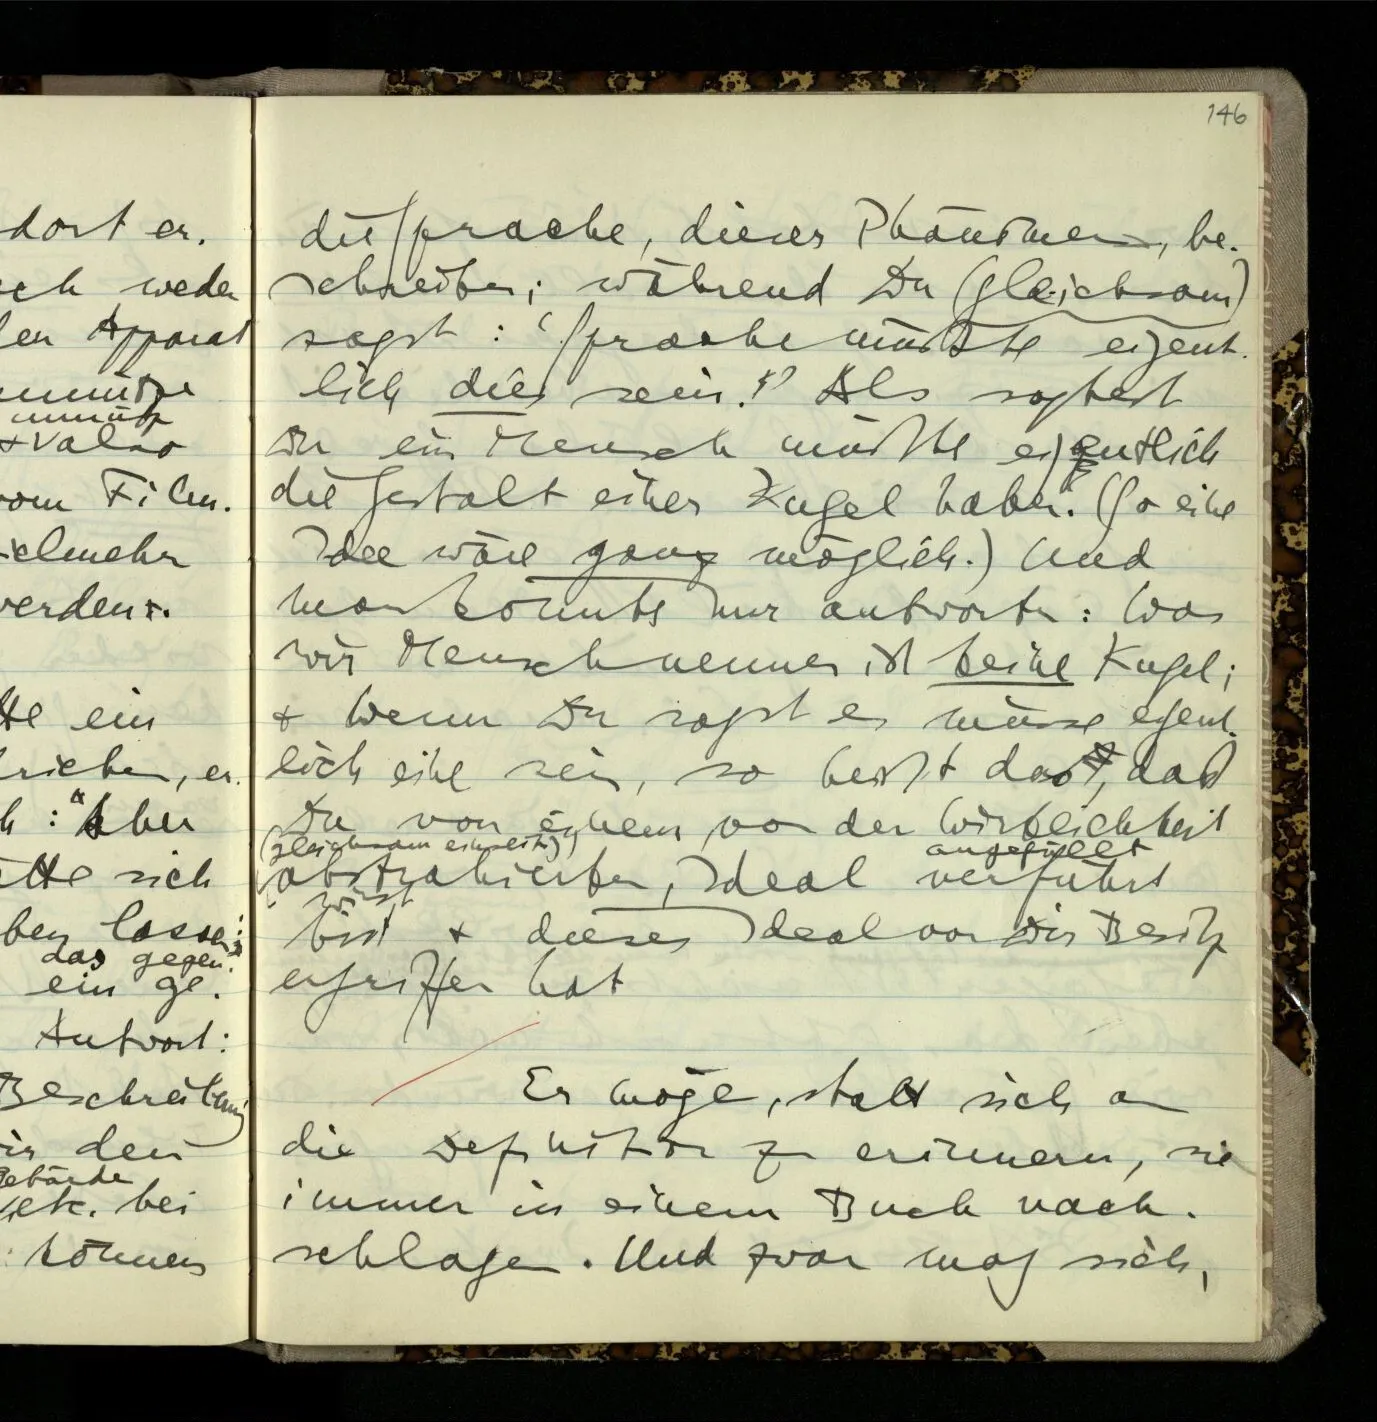 dort er.
weder
Apparat
unnütze
unnütz
+ Val
vom Film.
vielmehr
werden.
ein
, er.
: "Aber
sich
lassen;
das gegen¬
ein ge.
Antwort:
Beschreibung
den
Gebärde
etc. bei
können
146
die Sprache, dieses Phänomen, be¬
schreiben; während Du (gleichsam)
sagst: 'Sprache müßte eigent¬
lich dies sein!' Als sagtest
Du ein Mensch müßte eigentlich
die Gestalt einer Kugel haben. (So eine
Idee wäre ganz möglich.) Und
man könnte nur antworten: Was
wir Mensch nennen ist keine Kugel;
+ wenn Du sagst es müsse eigent¬
lich eine sein, so heißt das, daß
Du von einem von der Wirklichkeit
(gleichsam einseitig) angefüllt
abstrahierten, Ideal verführt
wirst
bist + dieses Ideal von Dir Besitz
ergriffen hat
Er möge, statt sich an
die Definition zu erinnern, sie
immer in einem Buch nach¬
schlagen. Und zwar mag sich,